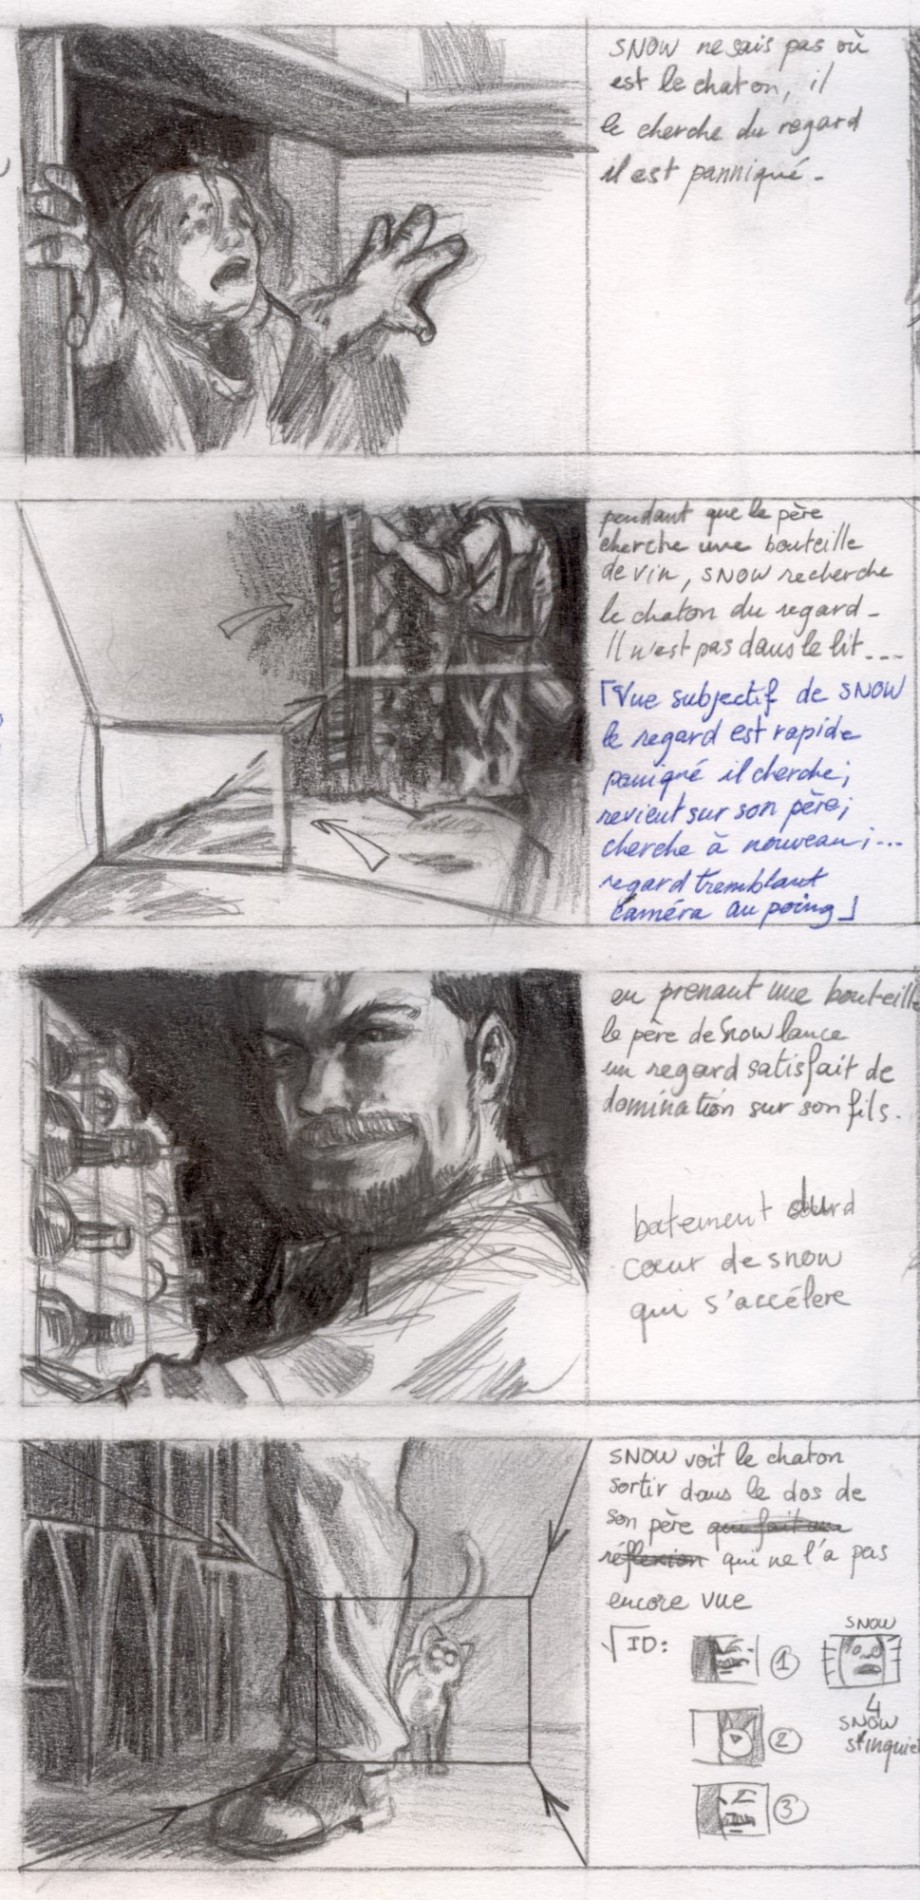 SNOW ne sais pas où
est le chaton, il
le cherche du regard
il est panniqué.
pendant que le père
cherche une bouteille
de vin, SNOW recherche
le chaton du regard -
Il n'est pas dans le lit...
「Vue subjectif de SNOW
le regard est rapide
paniqué il cherche;
revient sur son père;
cherche à nouveau;...
regard tremblant
caméra au poing」
en prenant une bouteille
le père de Snow lance
un regard satisfait de
domination sur son fils.
batement sourd
cœur de snow
qui s'accélere
SNOW voit le chaton
sortir dans le dos de
son père qui fait une
réflexion qui ne l'a pas
encore vue
ID:
1
SNOW
2
4
SNOW
s'inquiet
3